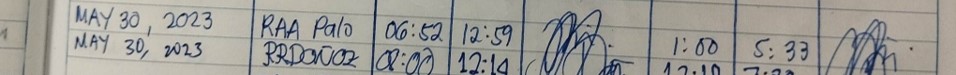 MAY 30, 2023 RAA Palo 06:52 12:59 1:00 5:33
MAY 30, 2023 08:00 12:14